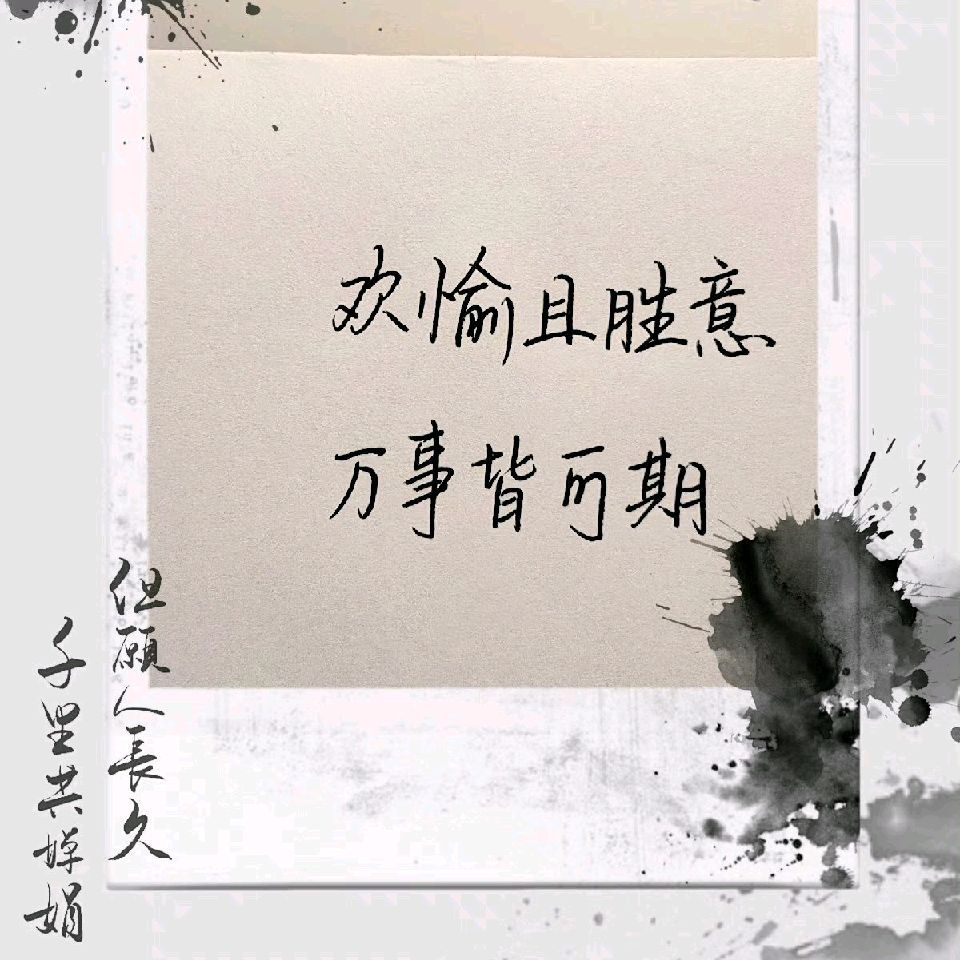 欢愉且胜意
万事皆可期
但願人長久
千里共婵娟